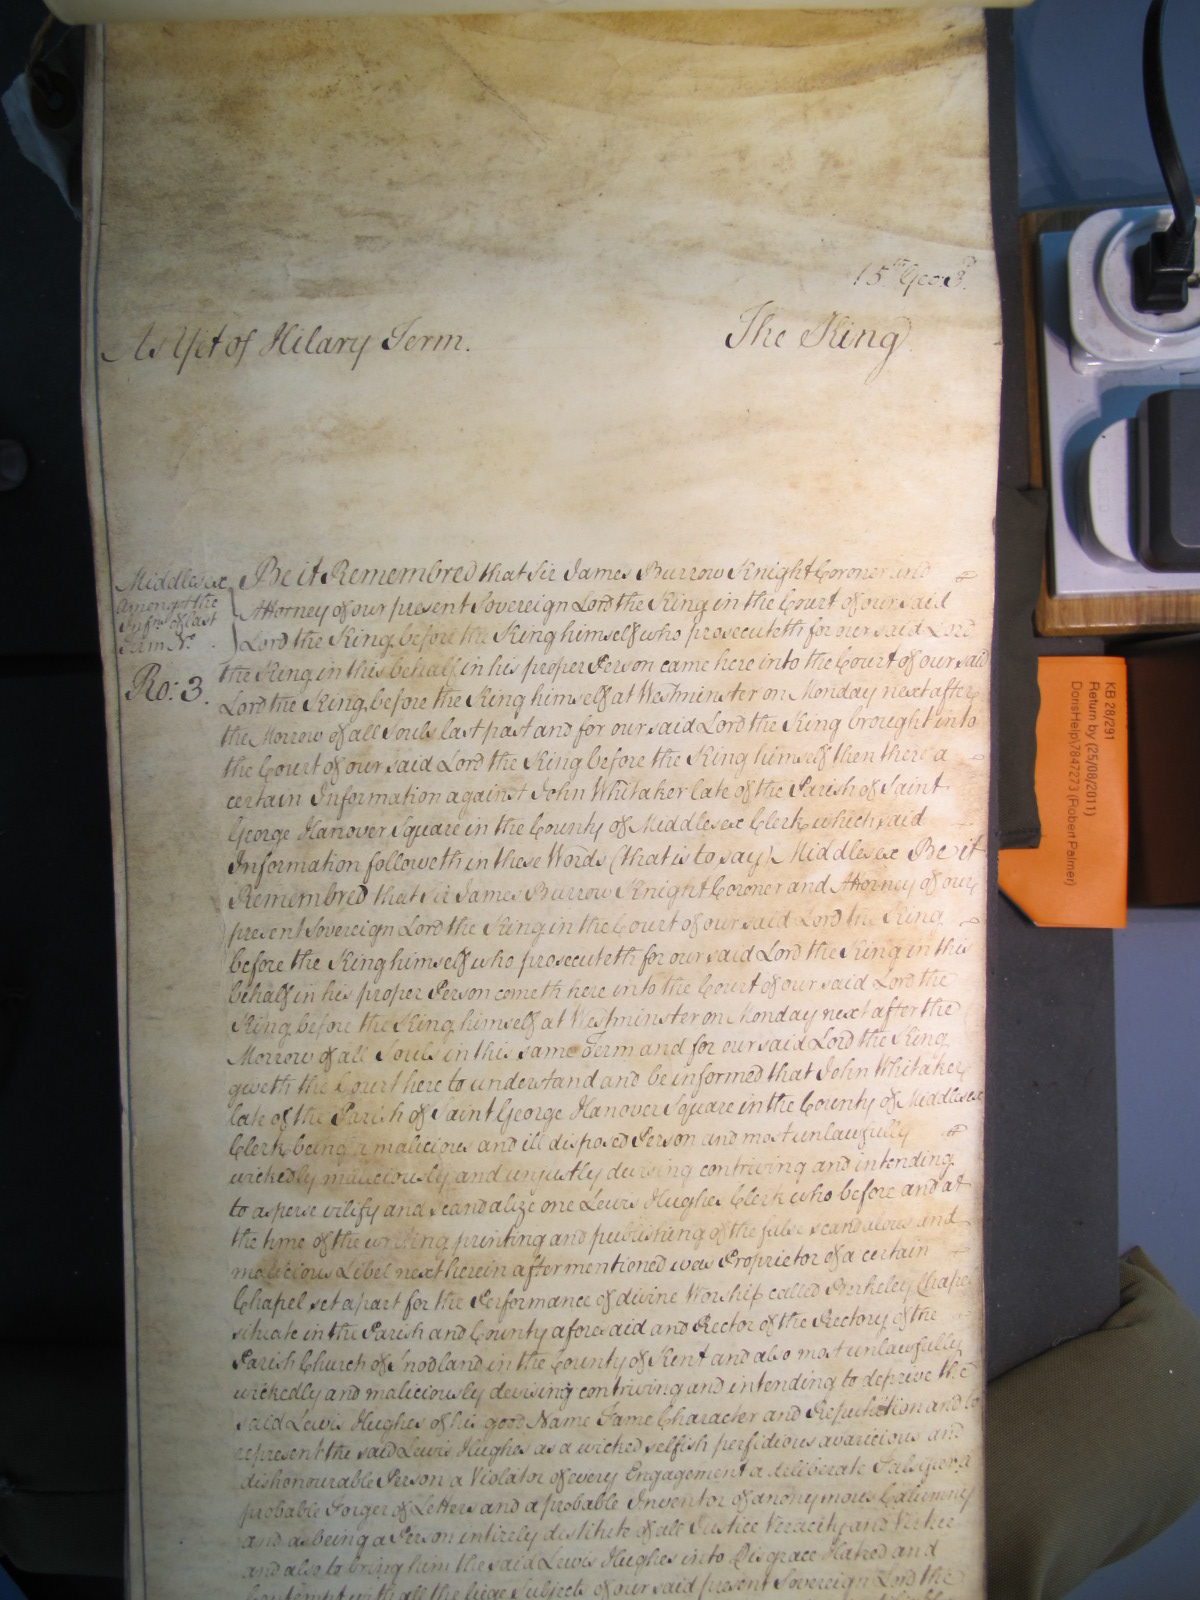 15th Geo: 3d.
As Yet of Hilary Term. The King
Middlesex
Amongst the
Infns. of last
Term
Ro: 3.
Be it Remembred that Sir James Burrow Knight Coroner and
Attorney of our present Sovereign Lord the King in the Court of our said
Lord the King before the King himself who prosecuteth for our said Lord
the King in this behalf in his proper Person came here into the Court of our said
Lord the King before the King himself at Westminster on Monday next after
the Morrow of all Souls last past and for our said Lord the King brought into
the Court of our said Lord the King before the King himself then there a
certain Information against John Whitaker late of the Parish of Saint
George Hanover Square in the County of Middlesex Clerk which said
Information followeth in these Words (that is to say) Middlesex Be it
Remembred that Sir James Burrow Knight Coroner and Attorney of our
present Sovereign Lord the King in the Court of our said Lord the King
before the King himself who prosecuteth for our said Lord the King in this
behalf in his proper Person cometh here into the Court of our said Lord the
King before the King himself at Westminster on Monday next after the
Morrow of all Souls in this same Term and for our said Lord the King
giveth the Court here to understand and be informed that John Whitaker
late of the Parish of Saint George Hanover Square in the County of Middlesex
Clerk being a malicious and ill disposed Person and most unlawfully
wickedly maliciously and unjustly devising contriving and intending
to asperse vilify and scandalize one Lewis Hughes Clerk who before and at
the time of the writing printing and publishing of the false scandalous and
malicious Libel next herein after mentioned was Proprietor of a certain
Chapel set apart for the Performance of divine Worship called Berkeley Chapel
situate in the Parish and County aforesaid and Rector of the Rectory of the
Parish Church of Snodland in the County of Kent and also most unlawfully
wickedly and maliciously devising contriving and intending to deprive the
said Lewis Hughes of his good Name Fame Character and Reputation and to
represent the said Lewis Hughes as a wicked selfish perfidious avaricious and
dishonourable Person a Violator of every Engagement a deliberate Falsifier a
probable Forger of Letters and a probable Inventor of anonymous Calumny
and as being a Person entirely destitute of all Justice Veracity and Virtue
and also to bring him the said Lewis Hughes into Disgrace Hatred and
Contempt with all the liege Subjects of our said present Sovereign Lord the
KB 28/291
Return by (25/08/2011)
DorisHelp\7847273 (Robert Palmer)